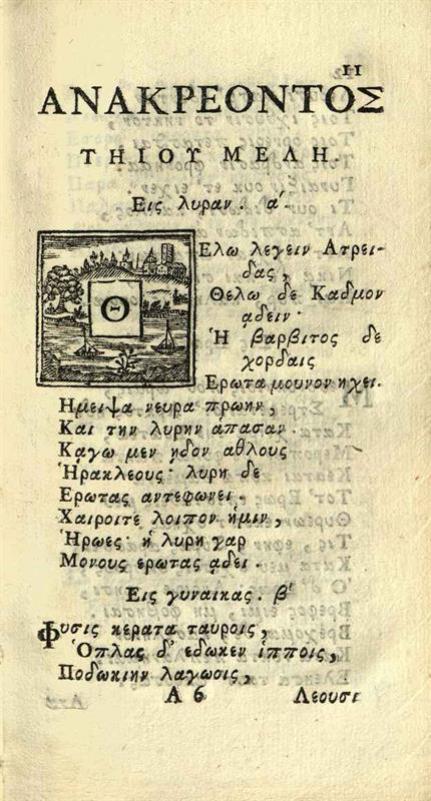 11
ΑΝΑΚΡΕΟΝΤΟΣ
ΤΗΙΟΥ ΜΕΛΗ.
Εις λυραν. α'.
Θ
Ελω λεγειν Ατρει-
δας,
Θελω δε Καδμον
ᾳδειν·
Ἡ βαρβιτος δε
χορδαις
Ερωτα μουνον ηχει.
Ημειψα νευρα πρωην,
Και την λυρην απασαν.
Κᾳγω μεν ηδον αθλους
Ἡρακλεους· λυρη δε
Ερωτας αντεφωνει.
Χαιροιτε λοιπον ἡμιν,
Ἡρωες· ἡ λυρη γαρ
Μονους ερωτας ᾳδει.
Εις γυναικας. β'
Φυσις κερατα ταυροις,
Ὁπλας δ' εδωκεν ἱπποις,
Ποδωκιην λαγωσις,
Α 6 Λεουσι